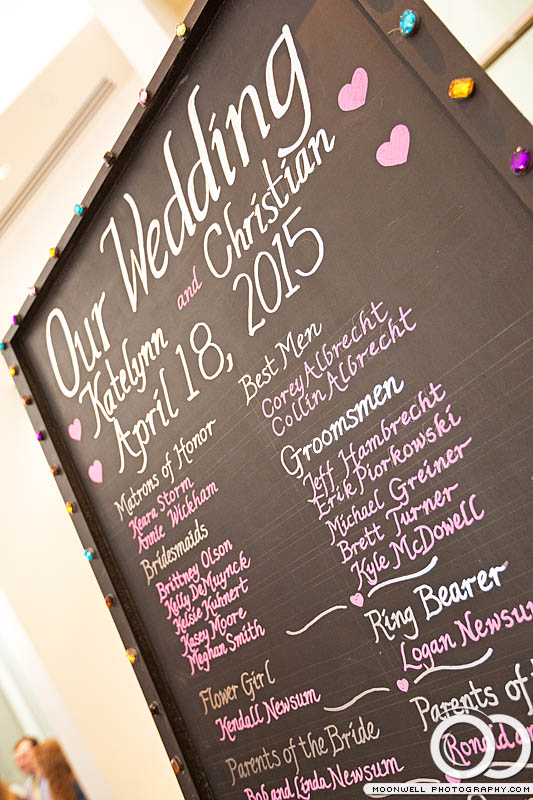 Our Wedding
Katelynn and Christian
April 18, 2015
Matrons of Honor
Keara Storm
Annie Wickham
Bridesmaids
Brittney Olson
Kelly DeMuynck
Kelsie Kuhnert
Kasey Moore
Meghan Smith
Flower Girl
Kendall Newsum
Parents of the Bride
Bob and Linda Newsum
Best Men
Corey Albrecht
Collin Albrecht
Groomsmen
Jeff Hambrecht
Erik Piorkowski
Michael Greiner
Brett Turner
Kyle McDowell
Ring Bearer
Logan Newsum
Parents of
MOONWELL PHOTOGRAPHY.COM